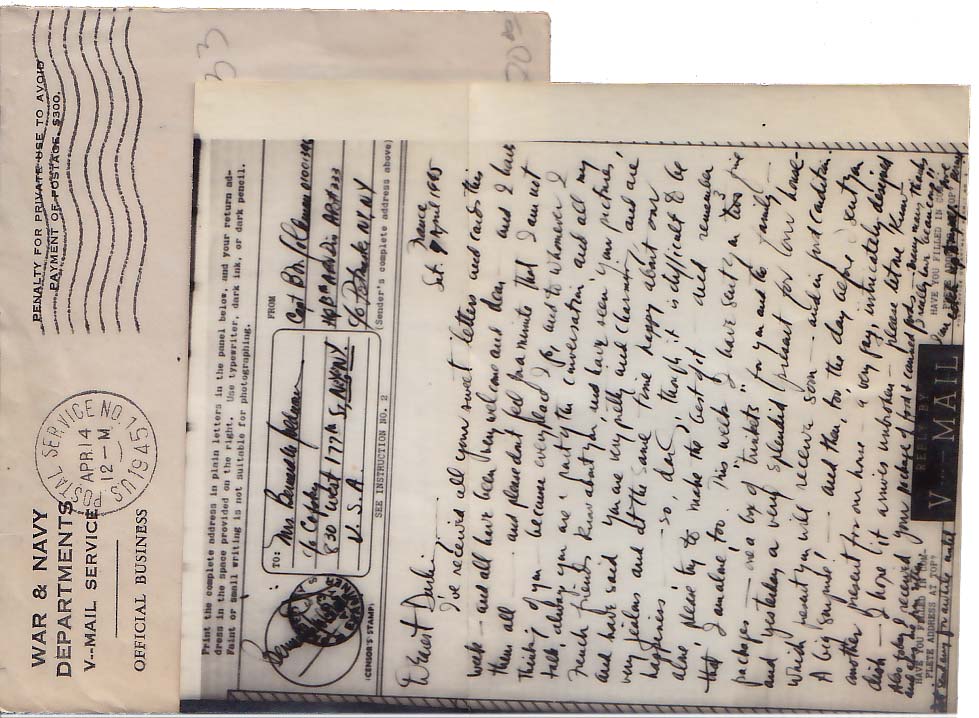 WAR & NAVY
DEPARTMENTS
V--MAIL SERVICE
OFFICIAL BUSINESS
U.S. POSTAL SERVICE NO.
APR. 14
12-M
1945
PENALTY FOR PRIVATE USE TO AVOID
PAYMENT OF POSTAGE, $300.
33
Print the complete address in plain letters in the panel below, and your return ad-
dress in the space provided on the right. Use typewriter, dark ink, or dark pencil.
Faint or small writing is not suitable for photographing.
TO:
Mrs. Bernard
c/o
830 West 177th St, NY NY
U.S.A
FROM
Capt
APO 333
c/o NY, NY
(CENSOR'S STAMP)
SEE INSTRUCTION NO. 2
(Sender's complete address above)
France
9 April 1945
Dearest Darlin:
I've received all your sweet letters and cards this
week - and all have been very welcome and dear - and I have
them all - and please don't feel for a minute that I am not
thinking of you because every place I go, and to whomever I
talk, always you are a part of the conversation and all my
French friends know about you and have seen your pictures,
and have said you are very pretty and charming and are
very jealous and at the same time happy about our
happiness - so dear, though it is difficult to be
alone, please try to make the best of it and remember
that I am alone, too. This week I have sent you
packages - one a bag of "trinkets" for you and the family -
and yesterday a very splendid present for our house -
which present you will receive soon - and in good condition.
A big surprise! - and then, too, the day before I sent you
another present for our house - a very gay, intricately designed
dish - I hope it arrives unbroken - please let me know
Also today I received your package of food & canned foods - many many thanks
HAVE YOU FILLED IN COM-
PLETE ADDRESS AT TOP?
REPLY BY
V···—MAIL
HAVE YOU FILLED IN COM-
PLETE ADDRESS AT TOP?